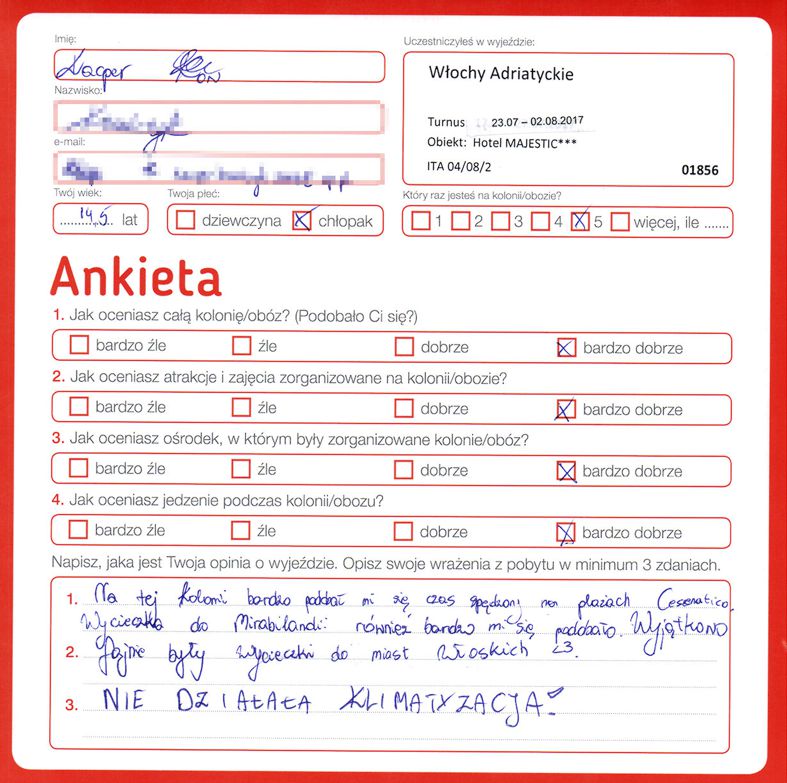 Imię:
Kacper
Nazwisko:
e-mail:
Twój wiek:
14,5 lat
Twoja płeć:
dziewczyna chłopak
Uczestniczyłeś w wyjeździe:
Włochy Adriatyckie
Turnus 23.07 – 02.08.2017
Obiekt: Hotel MAJESTIC***
ITA 04/08/2 01856
Który raz jesteś na kolonii/obozie?
1 2 3 4 5 więcej, ile .......
Ankieta
1. Jak oceniasz całą kolonię/obóz? (Podobało Ci się?)
bardzo źle źle dobrze bardzo dobrze
2. Jak oceniasz atrakcje i zajęcia zorganizowane na kolonii/obozie?
bardzo źle źle dobrze bardzo dobrze
3. Jak oceniasz ośrodek, w którym były zorganizowane kolonie/obóz?
bardzo źle źle dobrze bardzo dobrze
4. Jak oceniasz jedzenie podczas kolonii/obozu?
bardzo źle źle dobrze bardzo dobrze
Napisz, jaka jest Twoja opinia o wyjeździe. Opisz swoje wrażenia z pobytu w minimum 3 zdaniach.
1. Na tej kolonii bardzo podobał mi się czas spędzony na plażach Cesenatico.
Wycieczka do Mirabilandii również bardzo mi się podobało. Wyjątkowo
2. fajne były wycieczki do miast włoskich <3.
3. NIE DZIAŁAŁA KLIMATYZACJA!